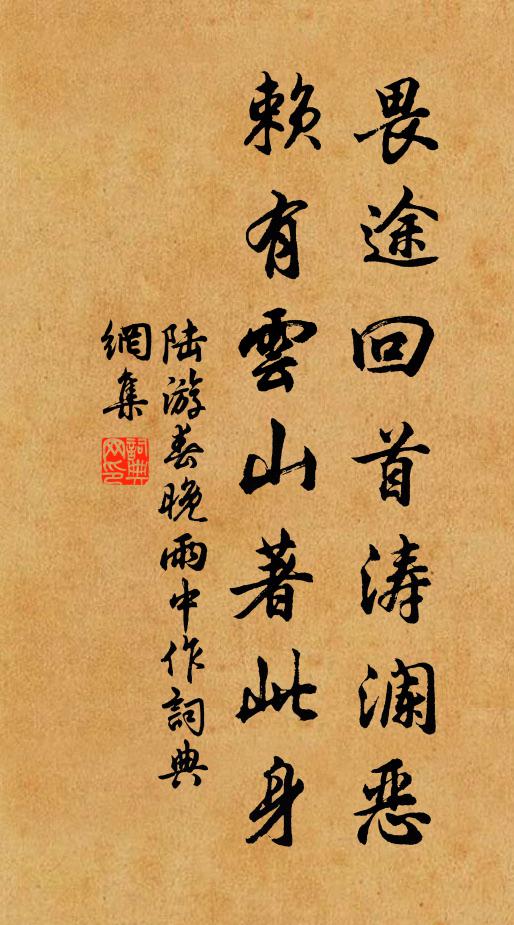 畏途回首涛澜恶
赖有雲山著此身
陆游春晚雨中作詞典
網集
詞典網印